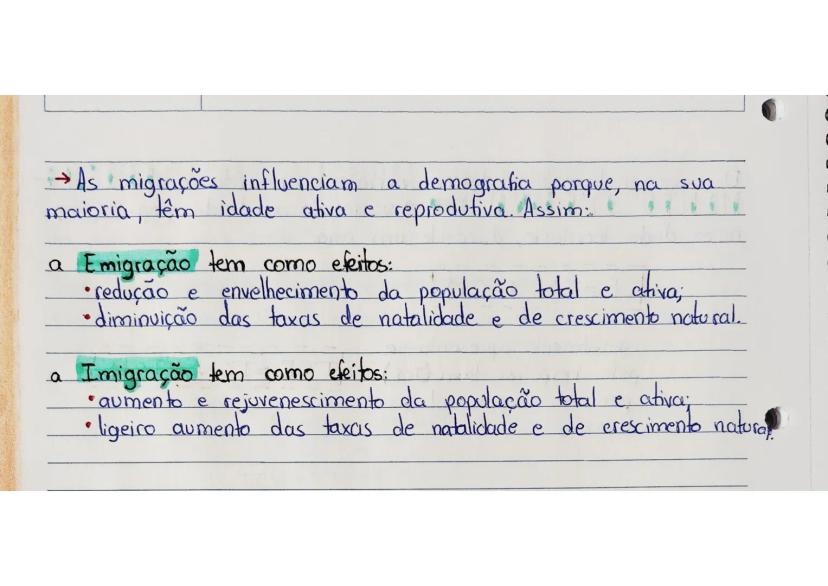 → As migrações influenciam a demografia porque, na sua
maioria, têm idade ativa e reprodutiva. Assim:
a Emigração tem como efeitos:
• redução e envelhecimento da população total e ativa;
• diminuição das taxas de natalidade e de crescimento natural.
a Imigração tem como efeitos:
• aumento e rejuvenescimento da população total e ativa;
• ligeiro aumento das taxas de natalidade e de crescimento natural.